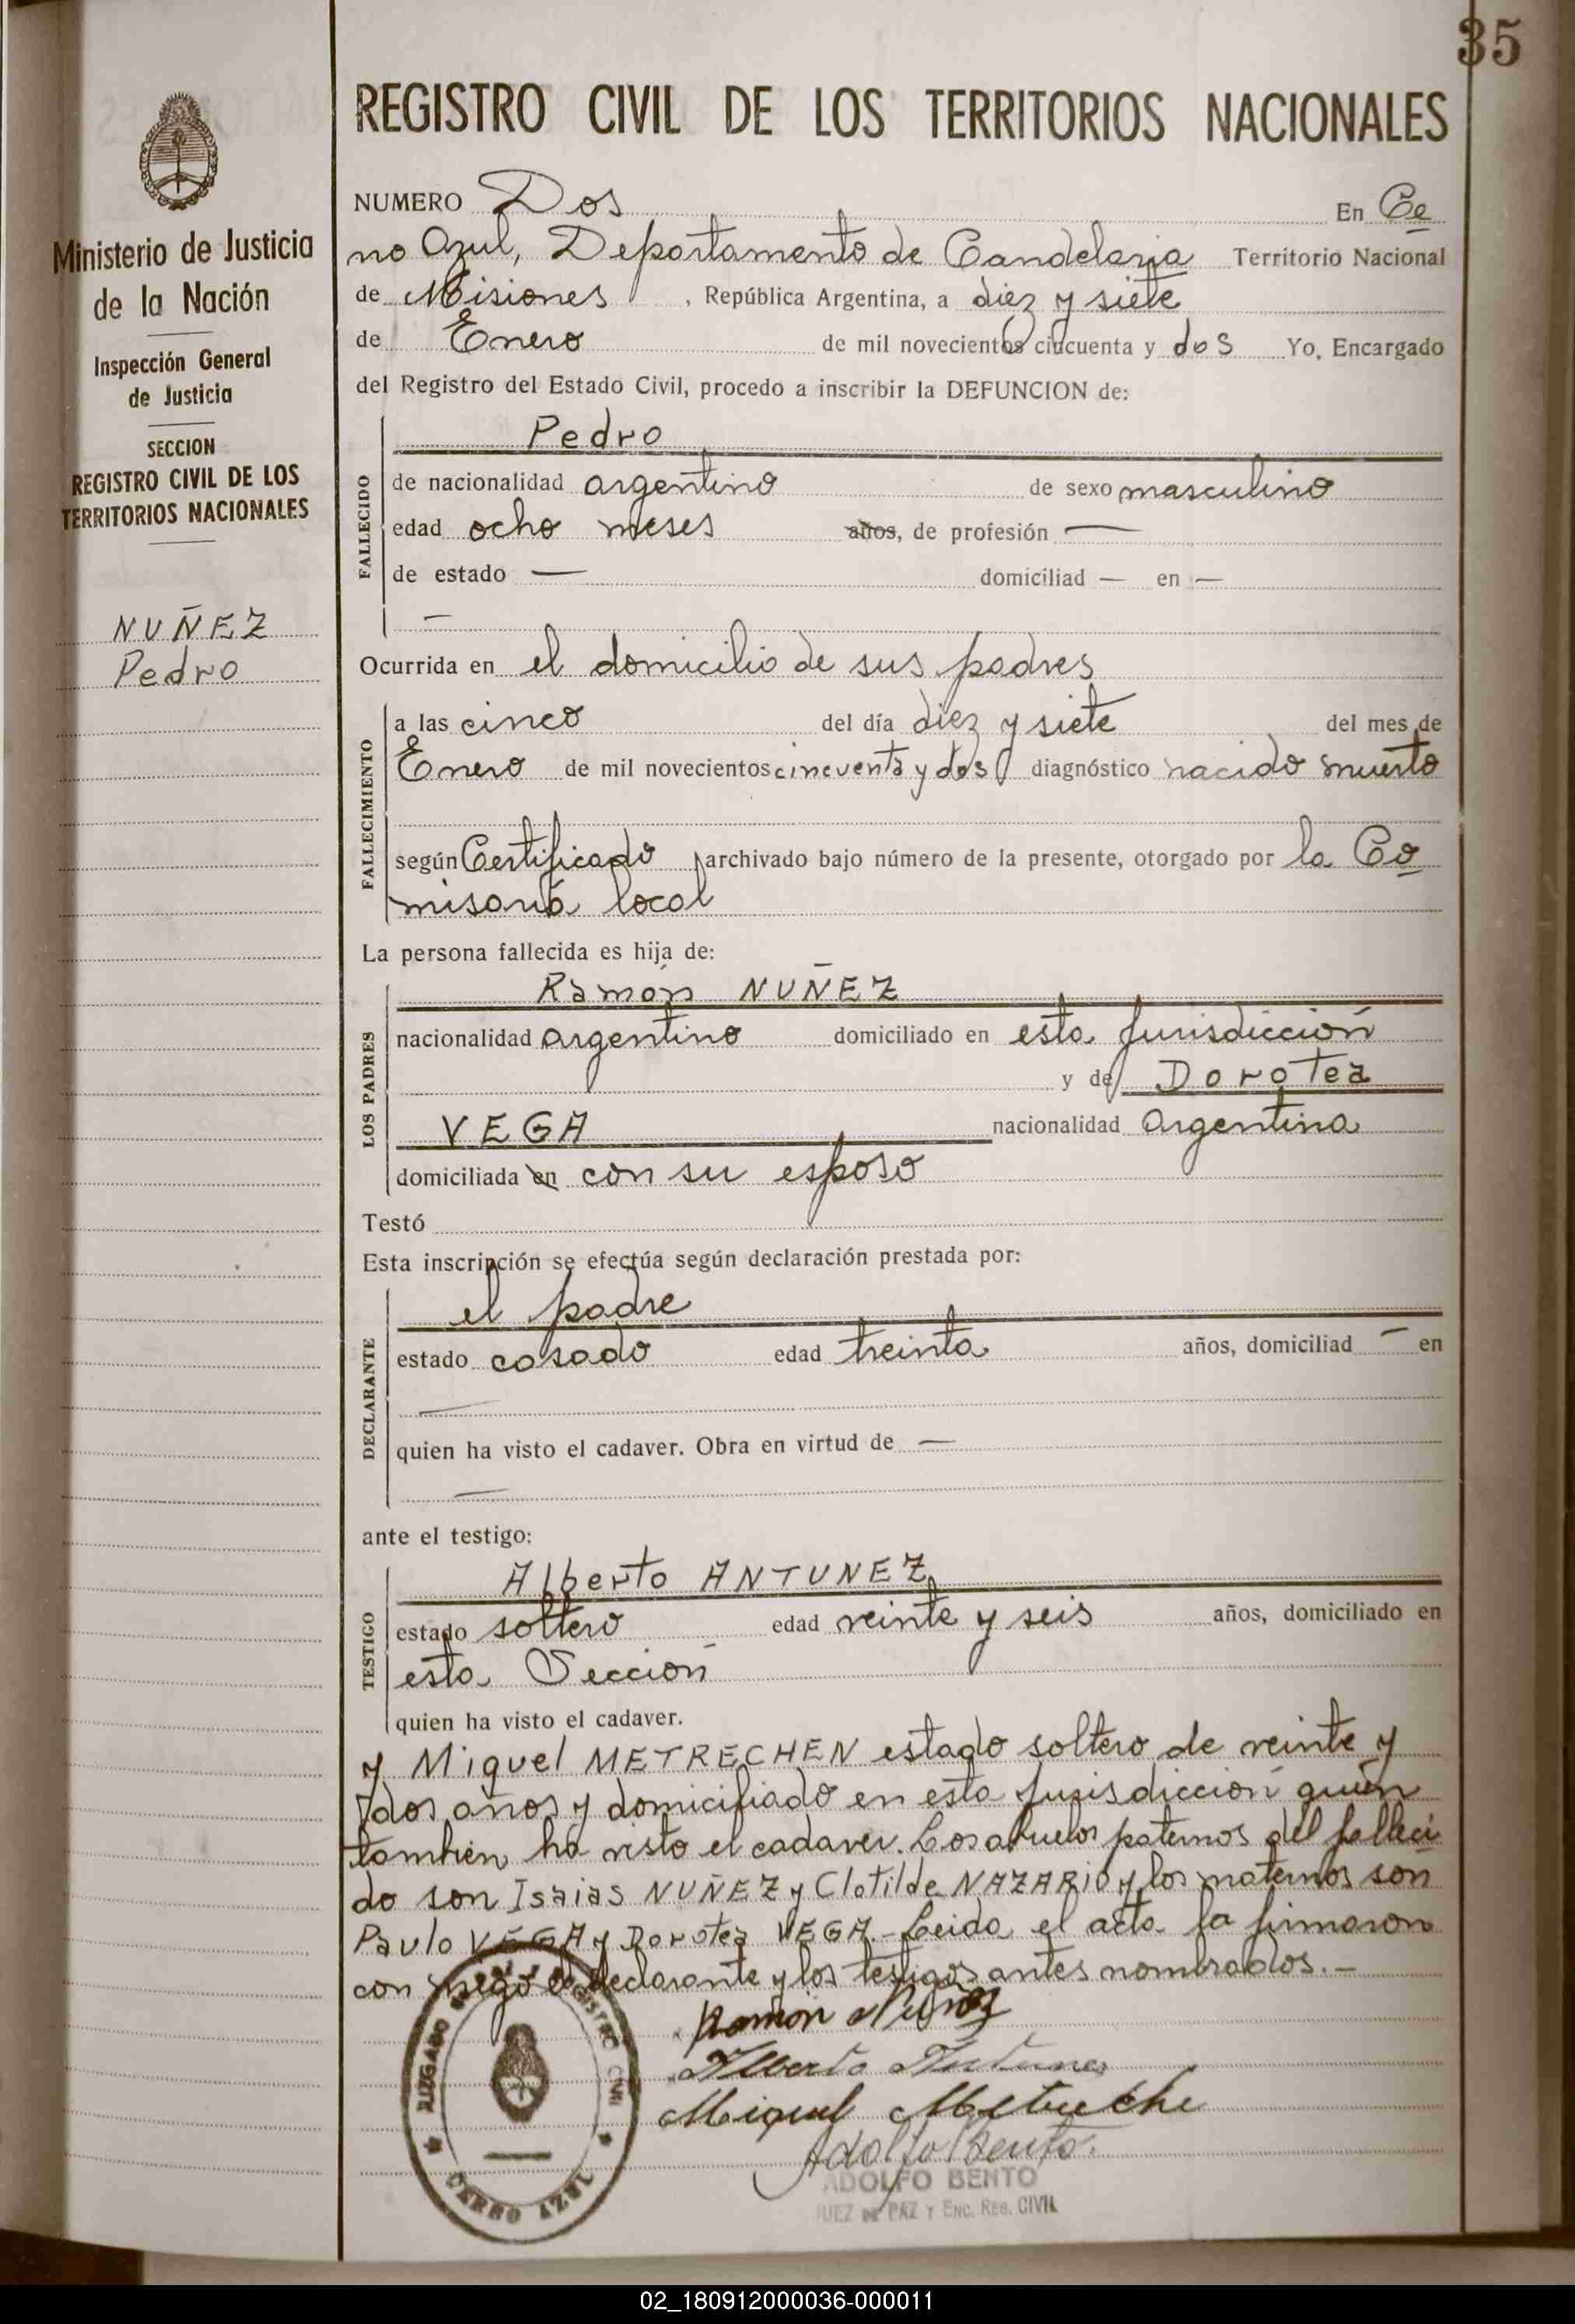 35
REGISTRO CIVIL DE LOS TERRITORIOS NACIONALES
Ministerio de Justicia
de la Nación
Inspección General
de Justicia
SECCION
REGISTRO CIVIL DE LOS
TERRITORIOS NACIONALES
NUÑEZ
Pedro
NUMERO Dos En Ce
rro Azul, Departamento de Candelaria Territorio Nacional
de Misiones, República Argentina, a diez y siete
de Enero de mil novecientos cincuenta y dos Yo, Encargado
del Registro del Estado Civil, procedo a inscribir la DEFUNCION de:
FALLECIDO
Pedro
de nacionalidad argentino de sexo masculino
edad ocho meses años, de profesión —
de estado — domiciliad — en —
—
Ocurrida en el domicilio de sus padres
FALLECIMIENTO
a las cinco del día diez y siete del mes de
Enero de mil novecientos cincuenta y dos diagnóstico nacido muerto
según Certificado archivado bajo número de la presente, otorgado por la Co
misaría local
La persona fallecida es hija de:
LOS PADRES
Ramón NUÑEZ
nacionalidad argentino domiciliado en esta Jurisdicción
y de Dorotea
VEGA nacionalidad argentina
domiciliada en con su esposo
Testó
Esta inscripción se efectúa según declaración prestada por:
DECLARANTE
el padre
estado casado edad treinta años, domiciliad — en
—
quien ha visto el cadaver. Obra en virtud de —
—
ante el testigo:
TESTIGO
Alberto ANTUNEZ
estado soltero edad veinte y seis años, domiciliado en
esta Sección
quien ha visto el cadaver.
y Miguel METRECHEN estado soltero de veinte y
dos años y domiciliado en esta Jurisdicción quién
tambien ha visto el cadaver. Los abuelos paternos del falleci
do son Isaias NUÑEZ y Clotilde NAZARIO y los maternos son
Paulo VEGA y Dorotea VEGA.- Leida el acta la firmaron
con migo el declarante y los testigos antes nombrados.-
Ramon Nuñez
Alberto Antunez
Miguel Metreche
Adolfo Bento.
ADOLFO BENTO
JUEZ DE PAZ Y ENC. REG. CIVIL
JUZGADO DE PAZ Y REGISTRO CIVIL
CERRO AZUL
02_180912000036-000011